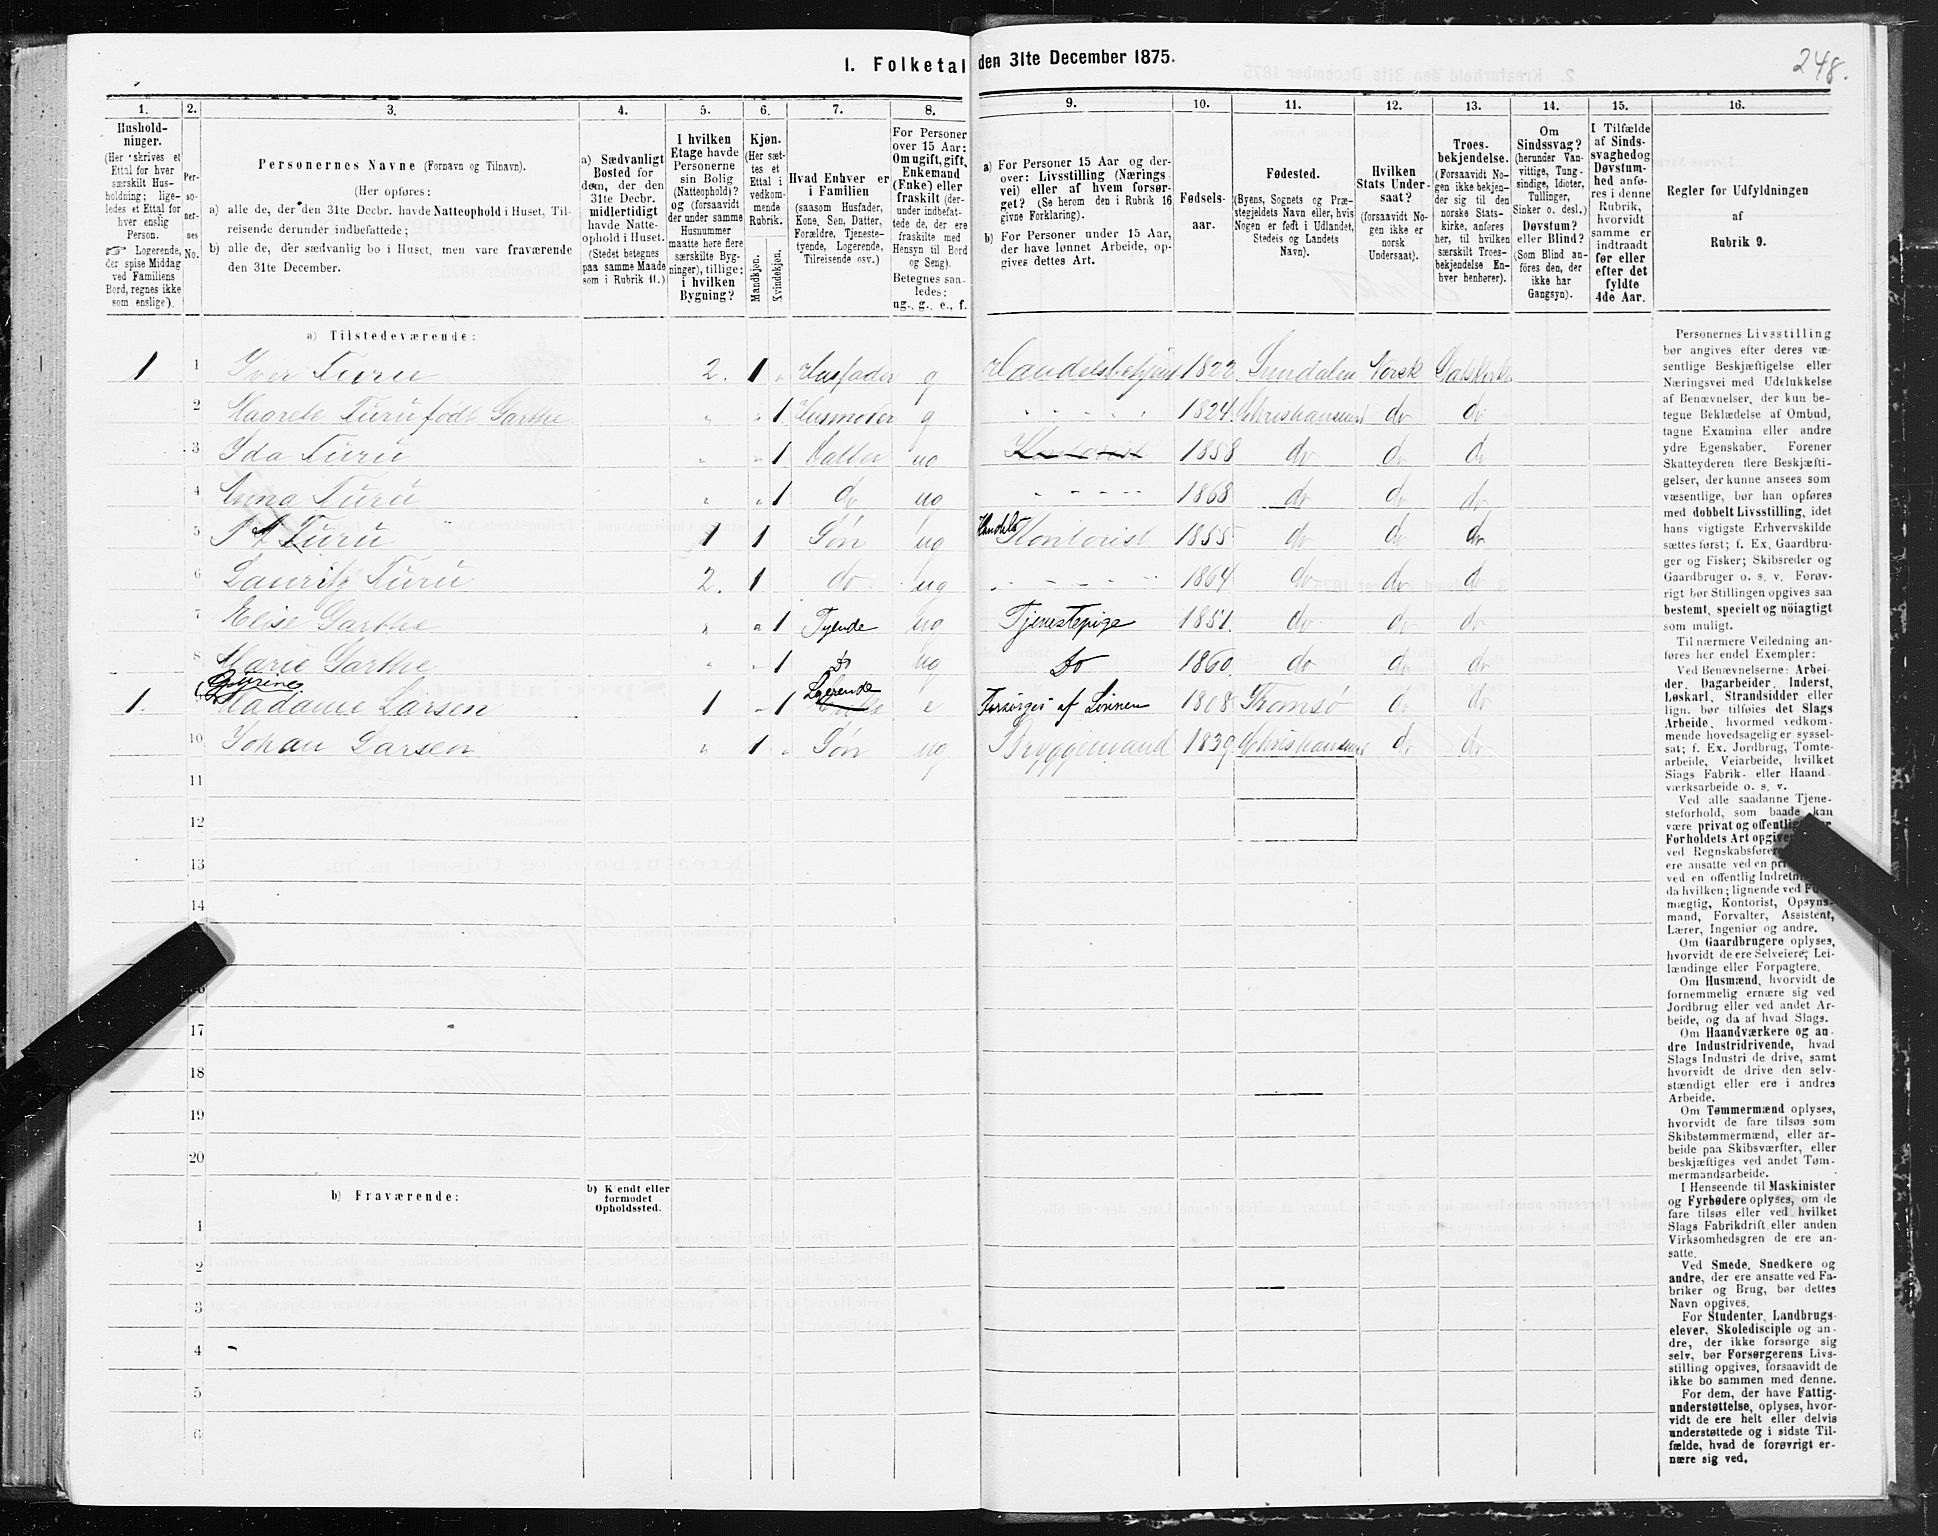 I. Folketal den 31te December 1875.
248.
1. 2. 3. 4. 5. 6. 7. 8. 9. 10. 11. 12. 13. 14. 15. 16.
Hushold-
ninger.
(Her skrives et
Ettal for hver
særskilt Hus-
holdning; lige-
ledes et Ettal for
hver enslig
Person.
☞ Logerende,
der spise Middag
ved Familiens
Bord, regnes ikke
som enslige).
Per-
so-
ner-
nes
No.
Personernes Navne (Fornavn og Tilnavn).
(Her opføres:
a) alle de, der den 31te Decbr. havde Natteophold i Huset, Til-
reisende derunder indbefattede;
b) alle de, der sædvanlig bo i Huset, men vare fraværende
den 31te December.
a) Sædvanligt
Bosted for
dem, der den
31te Decbr.
midlertidigt
havde Natte-
ophold i Huset.
(Stedet betegnes
paa samme Maade
som i Rubrik 11.)
I hvilken
Etage havde
Personerne
sin Bolig
(Natteophold)?
og (forsaavidt
der under samme
Husnummer
maatte høre flere
særskilte Byg-
ninger), tillige:
i hvilken
Bygning?
Kjøn.
(Her sæt-
tes et
Ettal i
vedkom-
mende
Rubrik.
Mandkjøn.
Kvindekjøn.
Hvad Enhver er
i Familien
(saasom Husfader,
Kone, Søn, Datter,
Forældre, Tjeneste-
tyende, Logerende,
Tilreisende osv.)
For Personer
over 15 Aar:
Om ugift, gift,
Enkemand
(Enke) eller
fraskilt (der-
under indbefat-
tede de, der ere
fraskilte med
Hensyn til Bord
og Seng).
Betegnes saa-
ledes:
ug., g., e., f.
a) For Personer 15 Aar og der-
over: Livsstilling (Nærings
vei) eller af hvem forsør-
get? (Se herom den i Rubrik 16
givne Forklaring).
b) For Personer under 15 Aar,
der have lønnet Arbeide, op-
gives dettes Art.
Fødsels-
aar.
Fødested.
(Byens, Sognets og Præ-
stegjeldets Navn eller, hvis
Nogen er født i Udlandet,
Stedeis og Landets
Navn).
Hvilken
Stats Under-
saat?
(forsaavidt No-
gen ikke er
norsk
Undersaat).
Troes-
bekjendelse.
(Forsaavidt No-
gen ikke bekjen-
der sig til den
norske Stats-
kirke, anføres
her, til hvilken
særskilt Troes-
bekjendelse En-
hver henhører).
Om
Sindssvag?
(herunder Van-
vittige, Tung-
sindige, Idioter,
Tullinger,
Sinker o. desl.)
Døvstum?
eller Blind?
(Som Blind an-
føres den, der
ikke har
Gangsyn).
I Tilfælde
af Sinds-
svaghed og
Døvstum-
hed anfø-
res i denne
Rubrik,
hvorvidt
samme er
indtraadt
før eller
efter det
fyldte
4de Aar.
Regler for Udfyldningen
af
Rubrik 9.
a) Tilstedeværende:
1. 1 Iver Furu 2. 1 Husfader g Handelsbetjent 1822 Sundalen Norsk Statskirke
2 Magreth Furu født Garthe 1 Husmoder g 1824 Christianssund do do
3 Ida Furu 1 Datter ug 1858 do do do
4 Anna Furu 1 do ug 1868 do do do
5 Furu 1 1 Søn ug Handels Kontorist 1855 do do do
6 Lauritz Furu 2. 1 do ug 1864 do do do
7 Elise Garthe 1 Tyende ug Tjenestepige 1851. do do do
8 Marie Garthe 1 Do ug Do 1860. do do do
1. 9 Madame Larsen 1 1 Logerende e Forsørges af Sønnen 1808 Tromsø do do
10 Johan Larsen 1 Søn ug Bryggemand 1839 Christianssund do do
11
12
13
14
16
17
18
19
20
b) Fraværende:
b) Kjendt eller
formodet
Opholdssted.
1
2
3
4
5
6
Personernes Livsstilling
bør angives efter deres væ-
sentlige Beskjæftigelse eller
Næringsvei med Udelukkelse
af Benævnelser, der kun be-
tegne Beklædelse af Ombud,
tagne Examina eller andre
ydre Egenskaber. Forener
Skatteyderen flere Beskjæfti-
gelser, der kunne ansees som
væsentlige, bør han opføres
med dobbelt Livsstilling, idet
hans vigtigste Erhvervskilde
sættes først; f. Ex. Gaardbru-
ger og Fisker; Skibsreder og
Gaardbruger o. s. v. Forøv-
rigt bør Stillingen opgives saa
bestemt, specielt og nöiagtigt
som muligt.
Til nærmere Veiledning an-
føres her endel Exempler:
Ved Benævnelserne: Arbei-
der, Dagarbeider, Inderst,
Løskarl, Strandsidder eller
lign. bør tilføies det Slags
Arbeide, hvormed vedkom-
mende hovedsagelig er syssel-
sat; f. Ex. Jordbrug, Tomte-
arbeide, Veiarbeide, hvilket
Slags Fabrik- eller Haand-
værksarbeide o. s. v.
Ved alle saadanne Tjene-
steforhold, som baade kan
være privat og offentlig
Forholdets Art opgives
ved Regnskabsførere
ere ansatte ved en
ved en offentlig Indretn
da hvilken; lignende ved
mægtig, Kontorist, Opsyns-
mand, Forvalter, Assistent,
Lærer, Ingeniør og andre.
Om Gaardbrugere oplyses,
hvorvidt de ere Selveiere, Lei-
lændinge eller Forpagtere.
Om Husmænd, hvorvidt de
fornemmelig ernære sig ved
Jordbrug eller ved andet Ar-
beide, og da af hvad Slags.
Om Haandværkere og an-
dre Industridrivende, hvad
Slags Industri de drive, samt
hvorvidt de drive den selv-
stændigt eller ere i andres
Arbeide.
Om Tømmermænd oplyses,
hvorvidt de fare tilsøs som
Skibstømmermænd, eller ar-
beide paa Skibsværfter, eller
beskjæftiges ved andet Tøm-
mermandsarbeide.
I Henseende til Maskinister
og Fyrbødere oplyses, om de
fare tilsøs eller ved hvilket
Slags Fabrikdrift eller anden
Virksomhedsgren de ere an-
satte.
Ved Smede, Snedkere og
andre, der ere ansatte ved Fa-
briker og Brug, bør dettes
Navn opgives.
For Studenter, Landbrugs-
elever, Skoledisciple og an-
dre, der ikke forsørge sig
selv, bør Forsørgerens Livs-
stilling opgives, forsaavidt de
ikke bo sammen med denne.
For dem, der have Fattig-
understøttelse, oplyses, hvor-
vidt de ere helt eller delvis
understøttede og i sidste Til-
fælde, hvad de forøvrigt er-
nære sig ved.